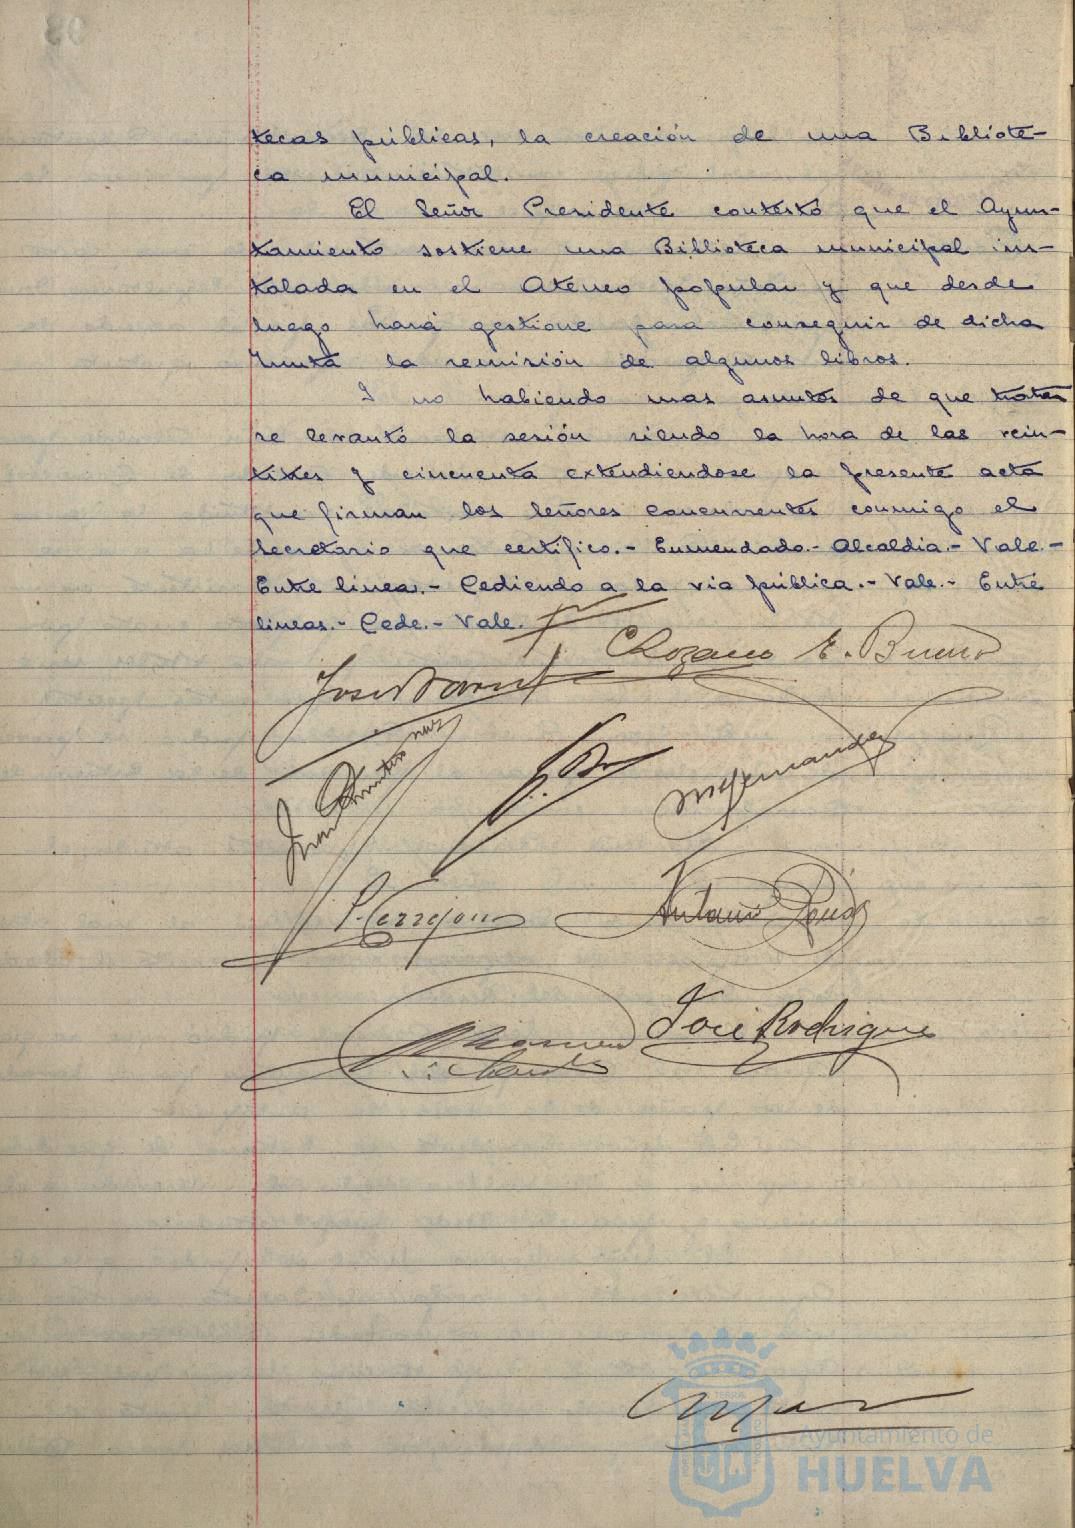 tecas públicas, la creación de una Bibliote-
ca municipal.
El Señor Presidente contestó que el Ayun-
tamiento sostiene una Biblioteca municipal ins-
talada en el Ateneo popular y que desde
luego hará gestione para conseguir de dicha
Junta la remisión de algunos libros.
Y no habiendo mas asuntos de que tratar
se levantó la sesión siendo la hora de las vein-
titres y cincuenta extendiendose la presente acta
que firman los Señores concurrentes conmigo el
Secretario que certifico.- Enmendado.- Alcaldia.- Vale.-
Entre linea.- Cediendo a la via pública.- Vale.- Entre
lineas.- Cede.- Vale.
E. Bueno
José
M Hernandez
P. Cerrejon
Antonio
José Rodrigue
Ayuntamiento de
HUELVA